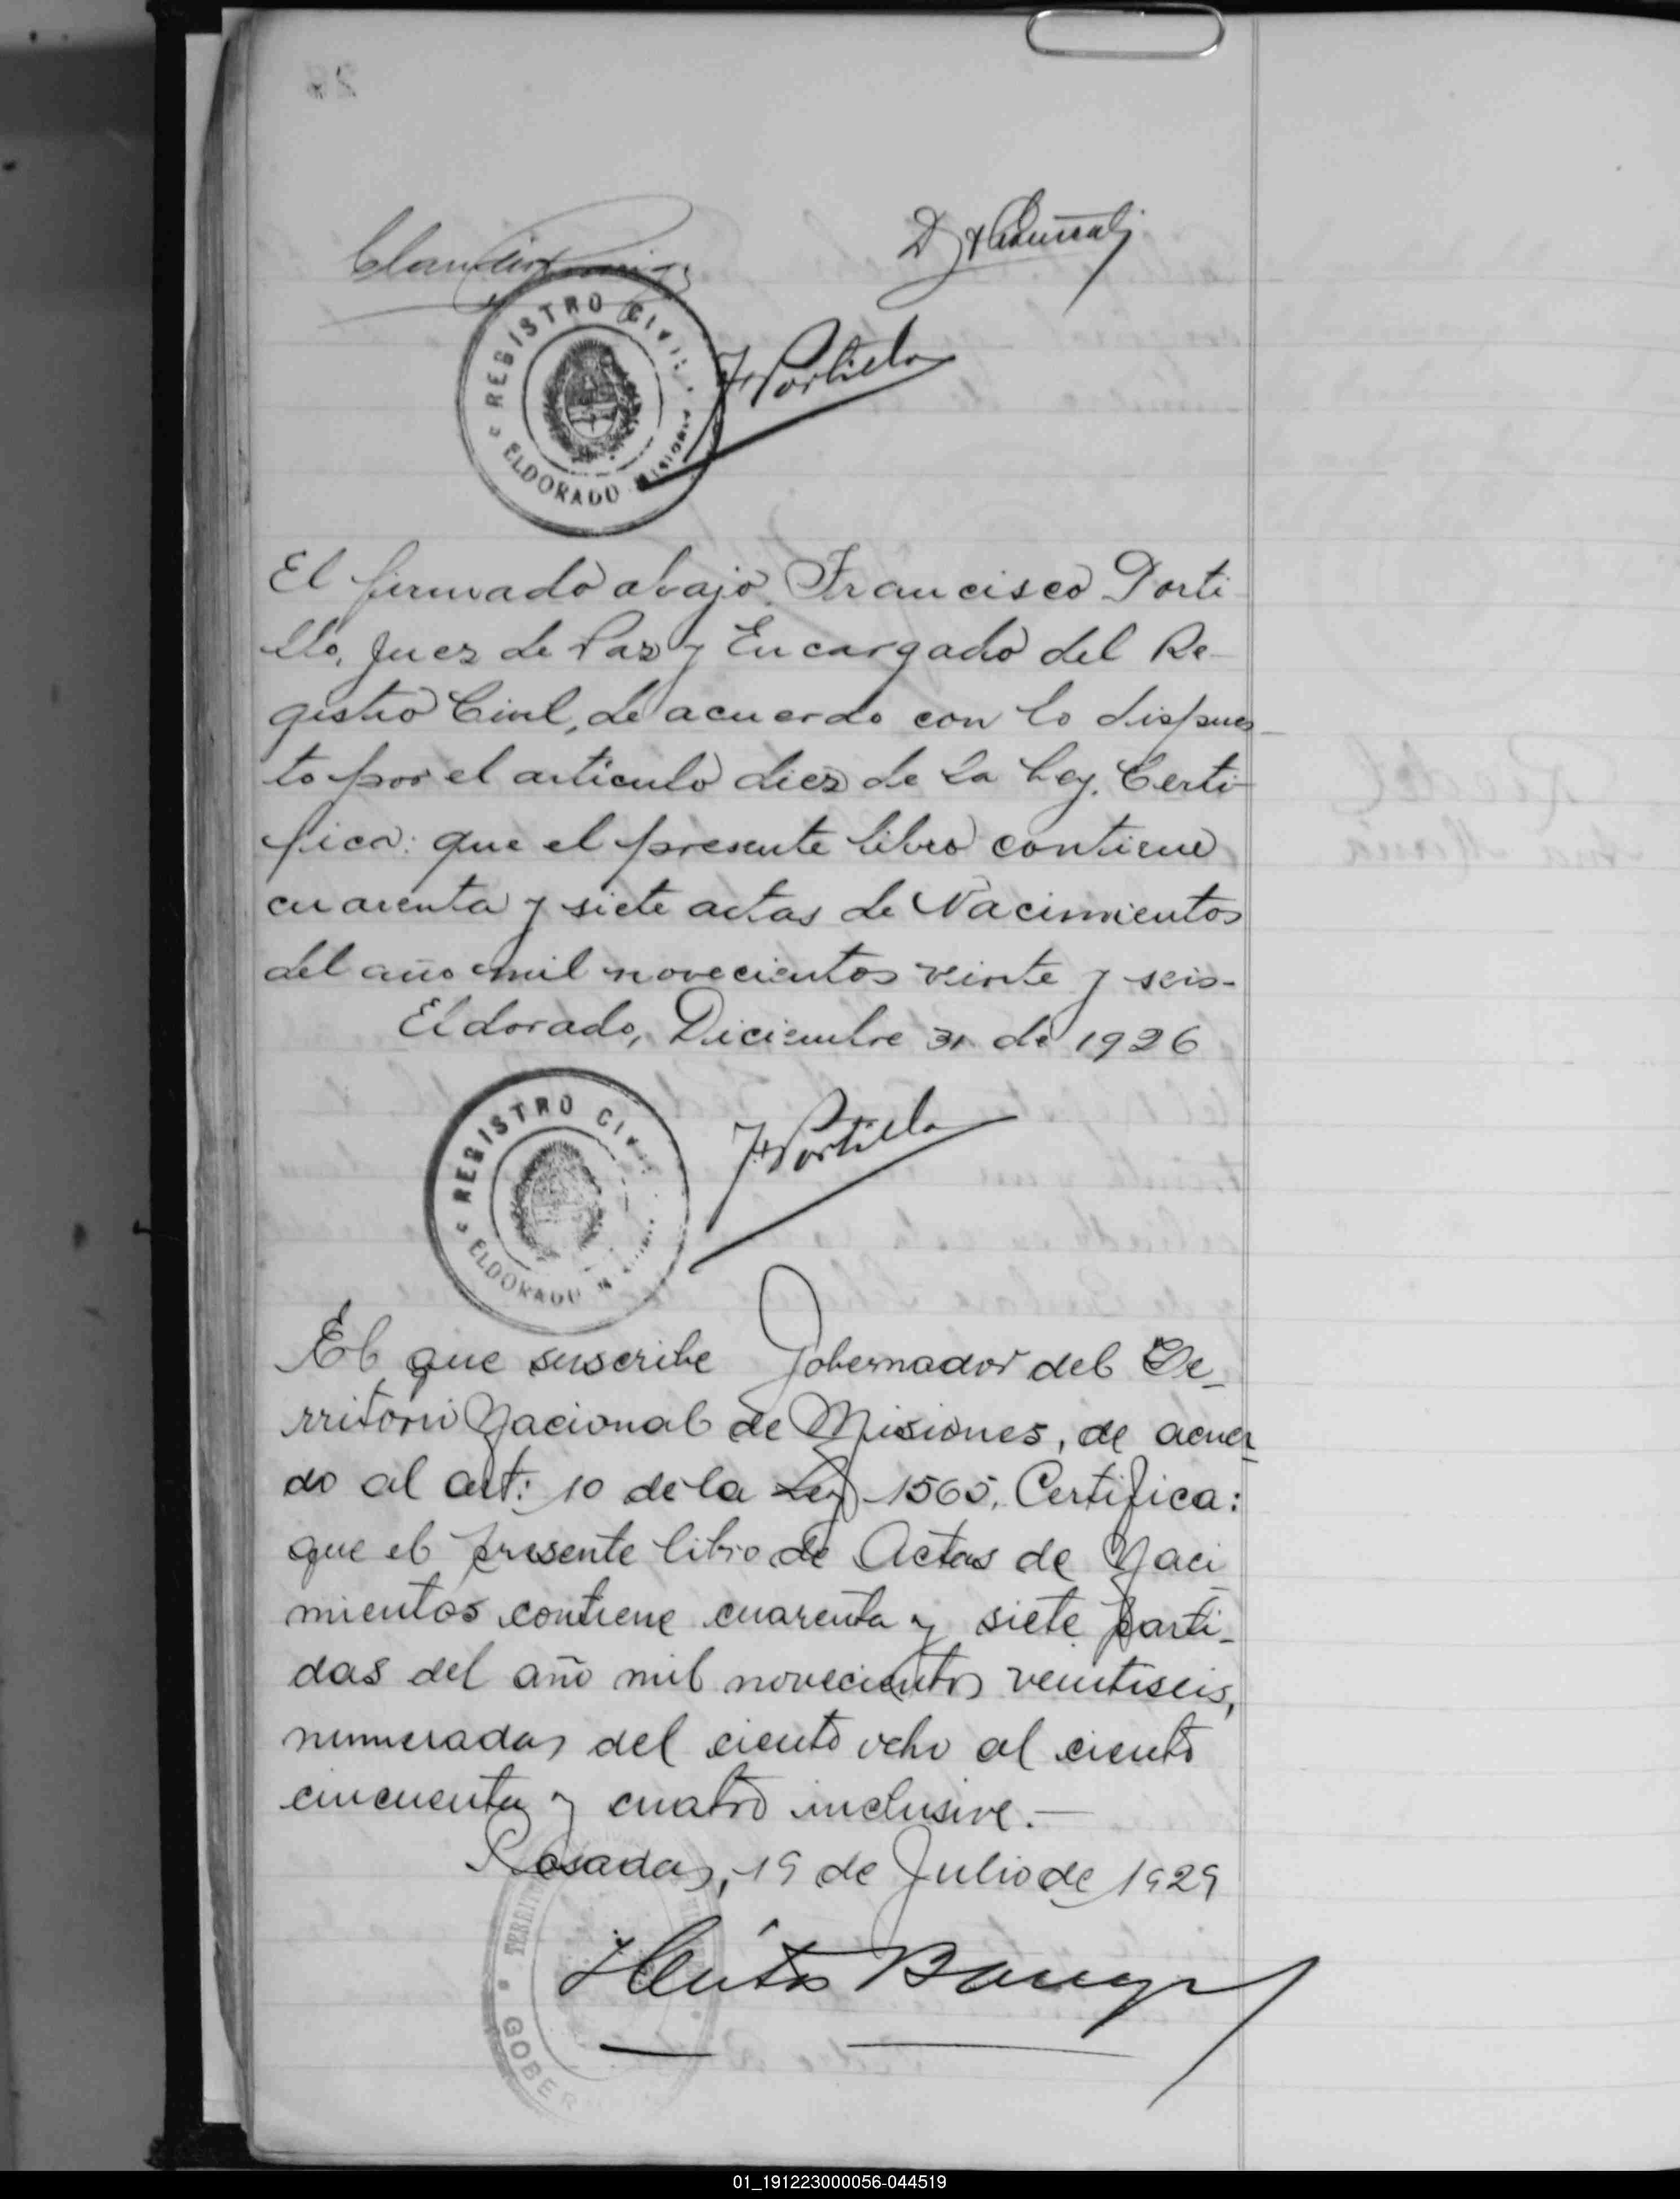 F. Portillo
REGISTRO CIVIL
ELDORADO MISIONES
El firmado abajo, Francisco Porti-
llo, Juez de Paz y Encargado del Re-
gistro Civil, de acuerdo con lo dispues-
to por el artículo diez de la Ley. Certi-
fica: que el presente libro contiene
cuarenta y siete actas de Nacimientos
del año mil novecientos veinte y seis-
Eldorado, Diciembre 31 de 1926
REGISTRO CIVIL
ELDORADO M
F. Portillo
El que suscribe Gobernador del Te-
rritorio Nacional de Misiones, de acuer-
do al art: 10 de la Ley 1565, Certifica:
que el presente libro de Actas de Naci
mientos contiene cuarenta y siete parti-
das del año mil novecientos veintiseis,
numeradas del ciento ocho al ciento
cincuenta y cuatro inclusive.—
Posadas, 19 de Julio de 1929
TERRITO
GOBER
01_191223000056-044519